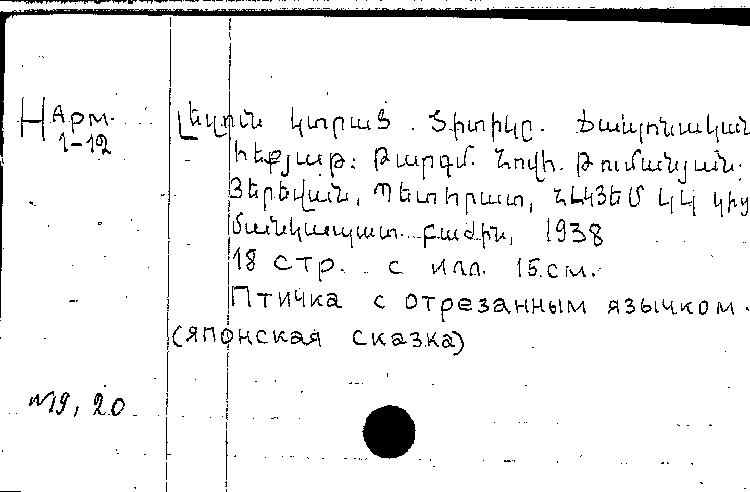 Н Арм.
1-12
Լեզուն կտրած Ծիտիկը. Ճապոնական
հեքյաթ: Թարգմ. Հովհ. Թումանյան:
Յերեվան, Պետհրատ, ՀԼԿՅԵՄ ԿԿ կից
մանկապատ. բաժին, 1938
18 стр. с илл. 15 см.
Птичка с отрезанным язычком.
(японская сказка)
№19, 20